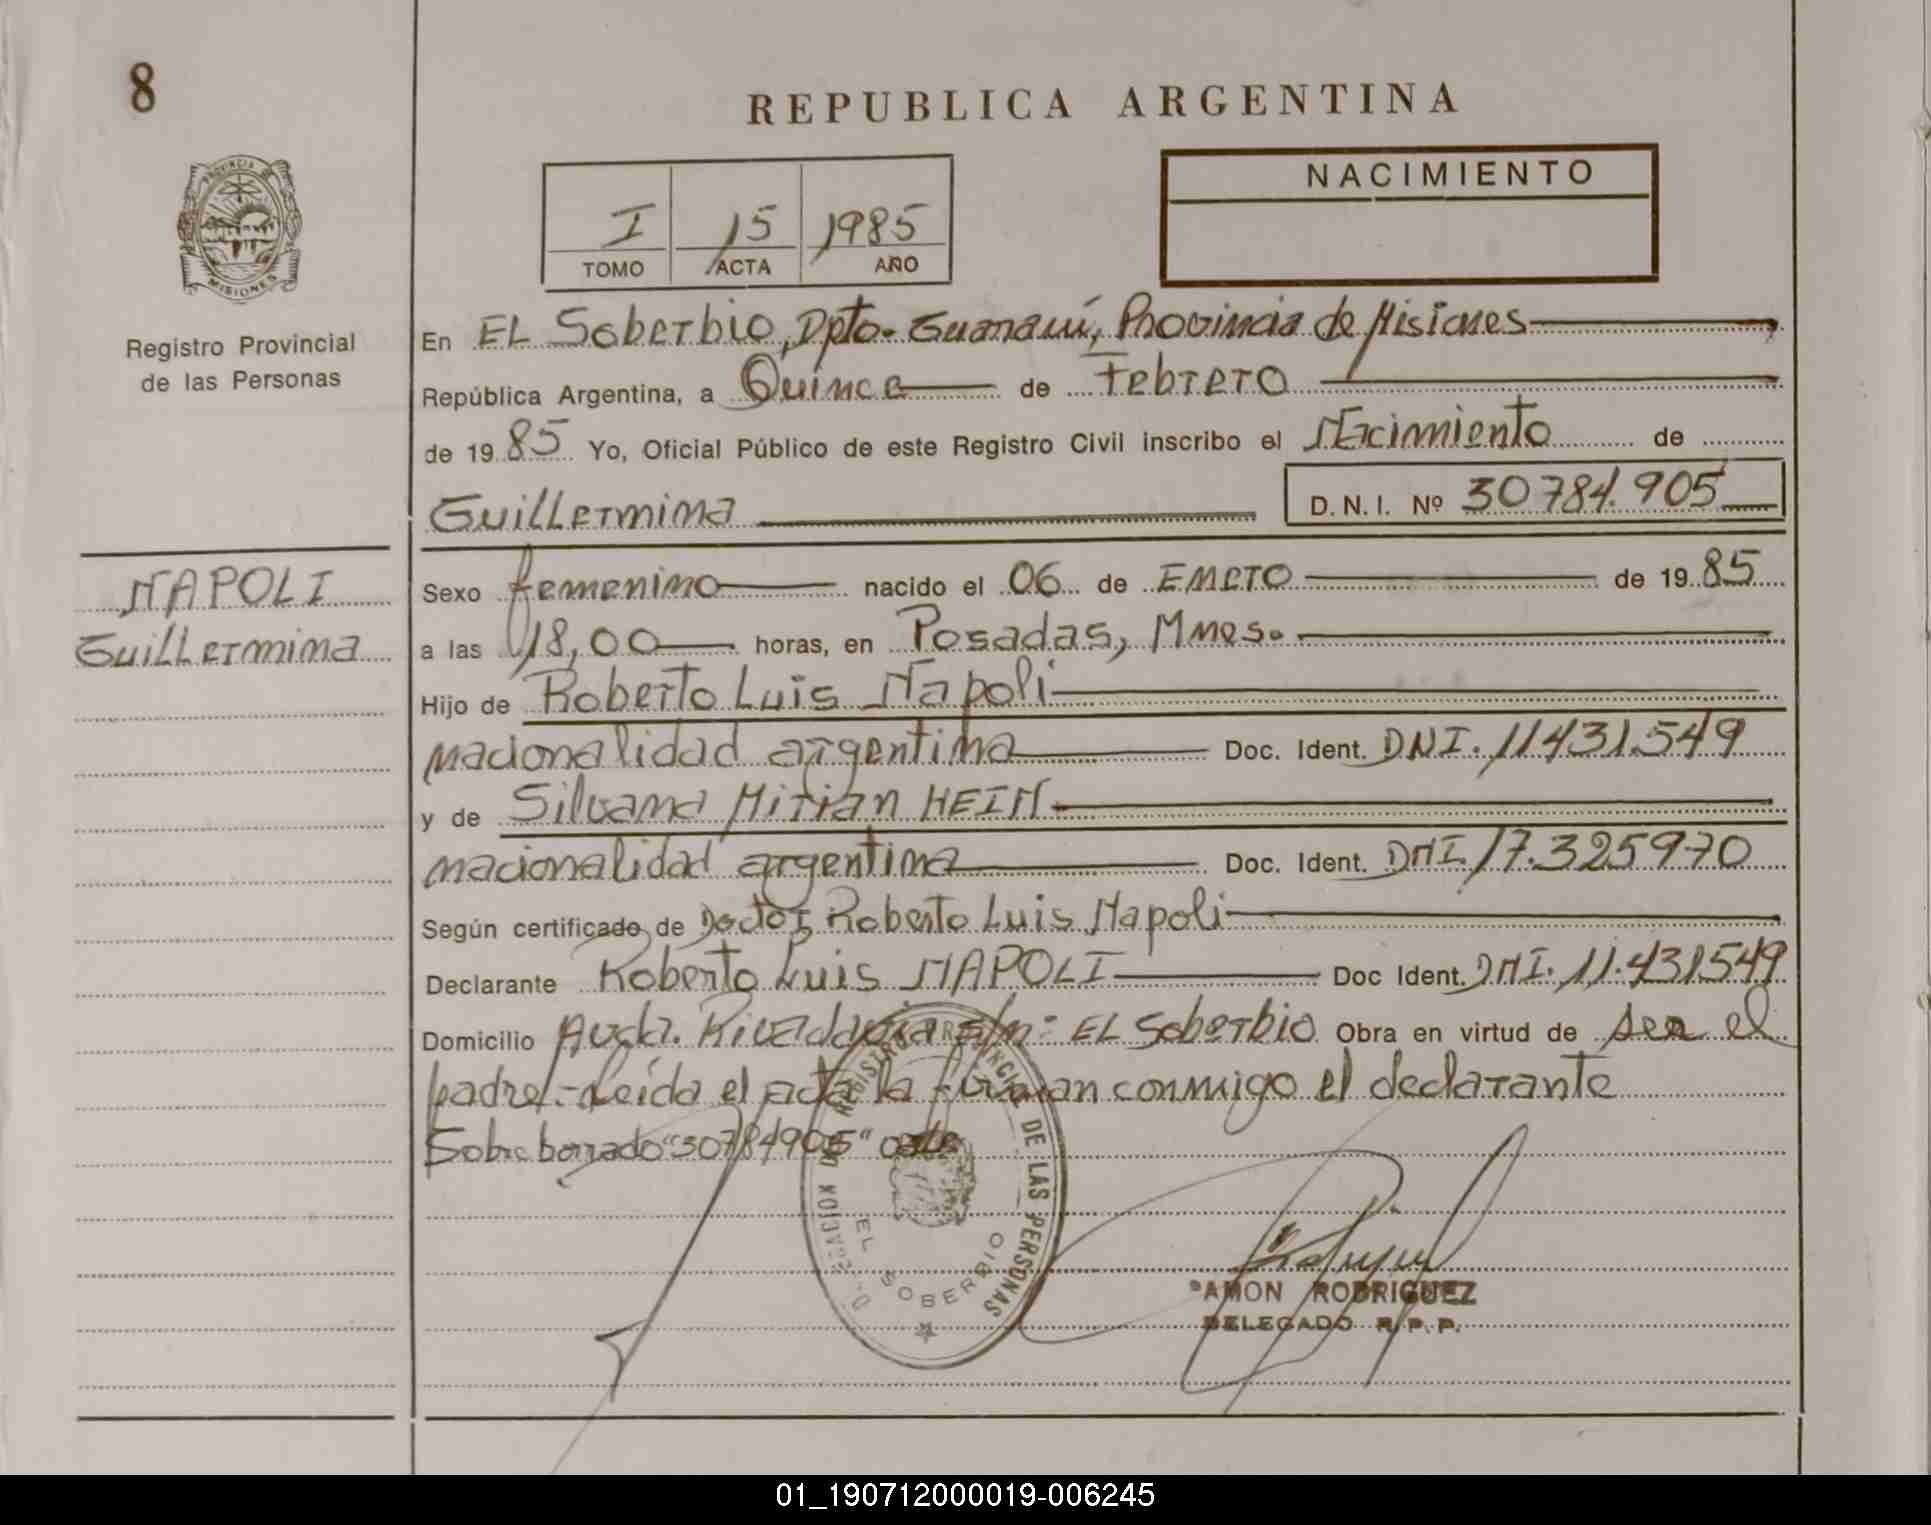 8
REPUBLICA ARGENTINA
PROVINCIA DE
MISIONES
Registro Provincial
de las Personas
I 15 1985
TOMO ACTA AÑO
NACIMIENTO
En EL Soberbio, Dpto. Guaraní, Provincia de Misiones
República Argentina, a Quince de Febrero
de 1985 Yo, Oficial Público de este Registro Civil inscribo el Nacimiento de
Guillermina D.N.I. Nº 30784.905
NAPOLI
Guillermina
Sexo femenino nacido el 06 de Enero de 1985
a las 18,00 horas, en Posadas, Mnes.
Hijo de Roberto Luis Napoli
nacionalidad argentina Doc. Ident. DNI. 11431.549
y de Silvana Mirian HEIN
nacionalidad argentina Doc. Ident. DNI. 17.325970
Según certificado de Doctor Roberto Luis Napoli
Declarante Roberto Luis NAPOLI Doc Ident. DNI. 11.431549
Domicilio Avda. Rivadavia s/nº EL Soberbio Obra en virtud de ser el
padre.- Leída el acta la firman conmigo el declarante
Sobre borrado "30784905" vale
REGISTRO PROVINCIAL DE LAS PERSONAS
EL SOBERBIO
AMON RODRIGUEZ
DELEGADO R.P.P.
01_190712000019-006245